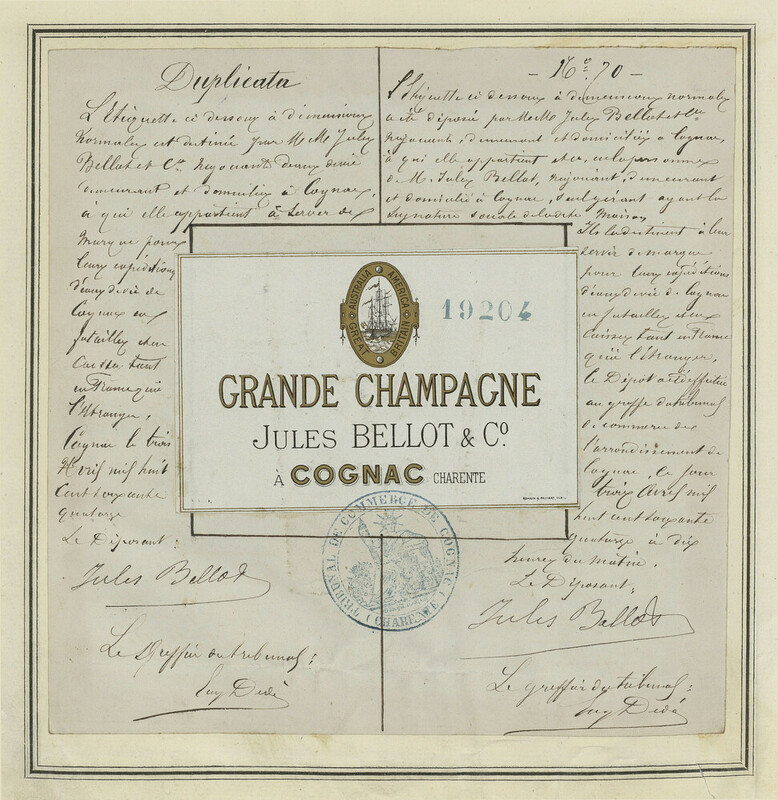 Duplicata
L'Etiquette ci dessous à dimensions
normales est destinée par M Mrs Jules
Bellot et Cie. negociants d'eaux de vie
demeurant et domiciliés à Cognac,
à qui elle appartient à servir de
Marque pour
leurs expéditions
d'eaux de vie de
Cognac en
futailles et en
Caisses tant
en France qu'à
l'Etranger.
Cognac le trois
Avril mil huit
Cent soixante
quatorze
Le Déposant :
Jules Bellot
Le Greffier du tribunal :
Dédé
- No. 70 -
L'Etiquette ci dessous à dimensions normales
a été déposé par M M. Jules Bellot et Cie
négociants, demeurant et domiciliés à Cognac,
à qui elle appartient et en la personne
de M. Jules Bellot, négociant, demeurant
et domicilié à Cognac, seul gérant ayant la
signature sociale de la dite Maison
Ils la destinent à leur
servir de marque
pour leurs expéditions
d'eaux de vie de Cognac
en futailles et en
caisses tant en France
qu'à l'étranger,
le Dépot a été effectué
au greffe du tribunal
de commerce de
l'arrondissement de
Cognac, le jour
trois Avril mil
huit cent soixante
quatorze à dix
heures du matin.
Le Déposant,
Jules Bellot
Le greffier du tribunal :
Dédé
AUSTRALIA AMERICA
GREAT BRITAIN
19204
GRANDE CHAMPAGNE
JULES BELLOT & Co.
À COGNAC CHARENTE
TRIBUNAL DE COMMERCE DE COGNAC
(CHARENTE)